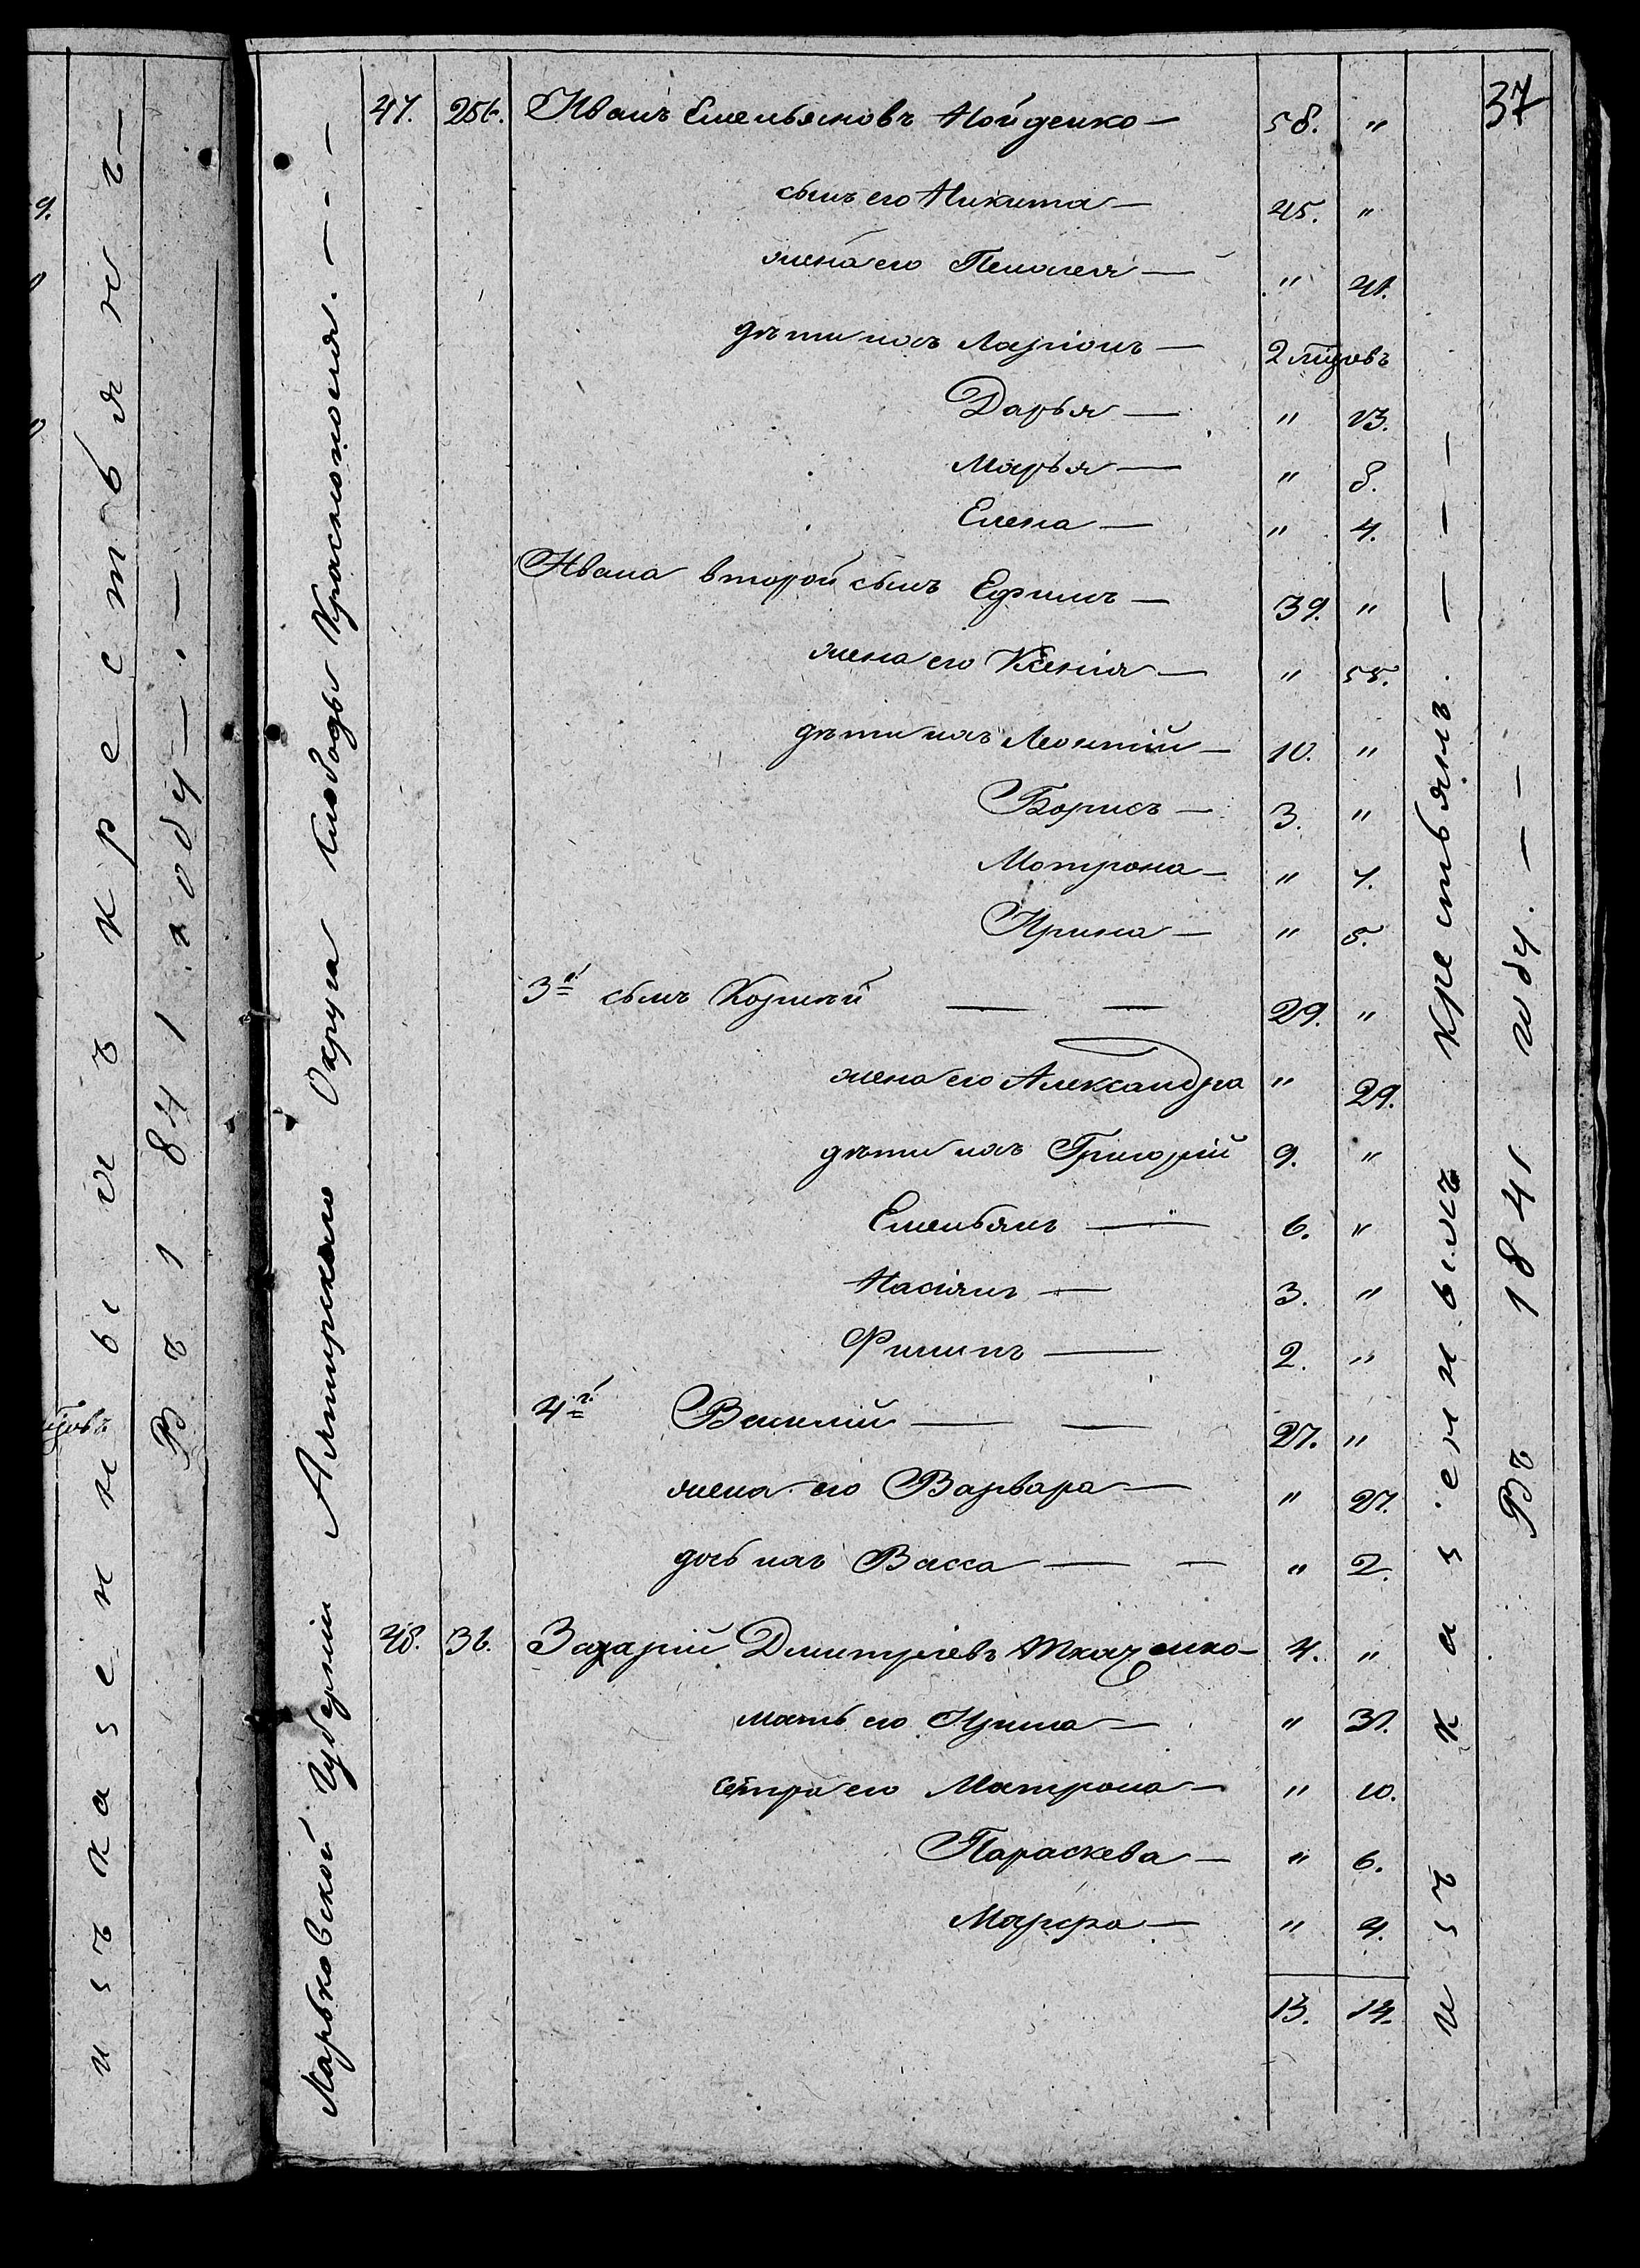 37
47. 256. Иванъ Емельяновъ Нойденко — 58. "
сынъ его Никита — 45. "
жена его Пелагея — " 41.
дѣти ихъ Ларіонъ — 2 мѣсяцовъ
Дарья — " 13.
Марья — " 8.
Елена — " 4.
Ивана второй сынъ Ефимъ — 39. "
жена его Ксенія — " 35.
дѣти ихъ Леонтій — 10. "
Борисъ — 3. "
Мотрона — " 7.
Ирина — " 5.
3й сынъ Корнѣй — — 29. "
жена его Александра " 29.
дѣти ихъ Григорій 9. "
Емельянъ — 6. "
Касіянъ — 3. "
Филипъ — 2. "
4й Василій — — 27. "
жена его Варвара — " 27.
дочь ихъ Васса — — " 2.
48. 36. Захарій Дмитріевъ Ткаченко — 4. "
мать его Ирина — " 31.
сестра его Матрона — " 10.
Параскева — " 6.
Марфа — " 4.
13. 14.
Харьковской Губерніи Ахтирскаго Округа слободы Краснополья. — - —
изъ казенныхъ крестьянъ. — — —
Въ 1841 году. — —
изъ казенныхъ крестьянъ —
Въ 1841 году — . —